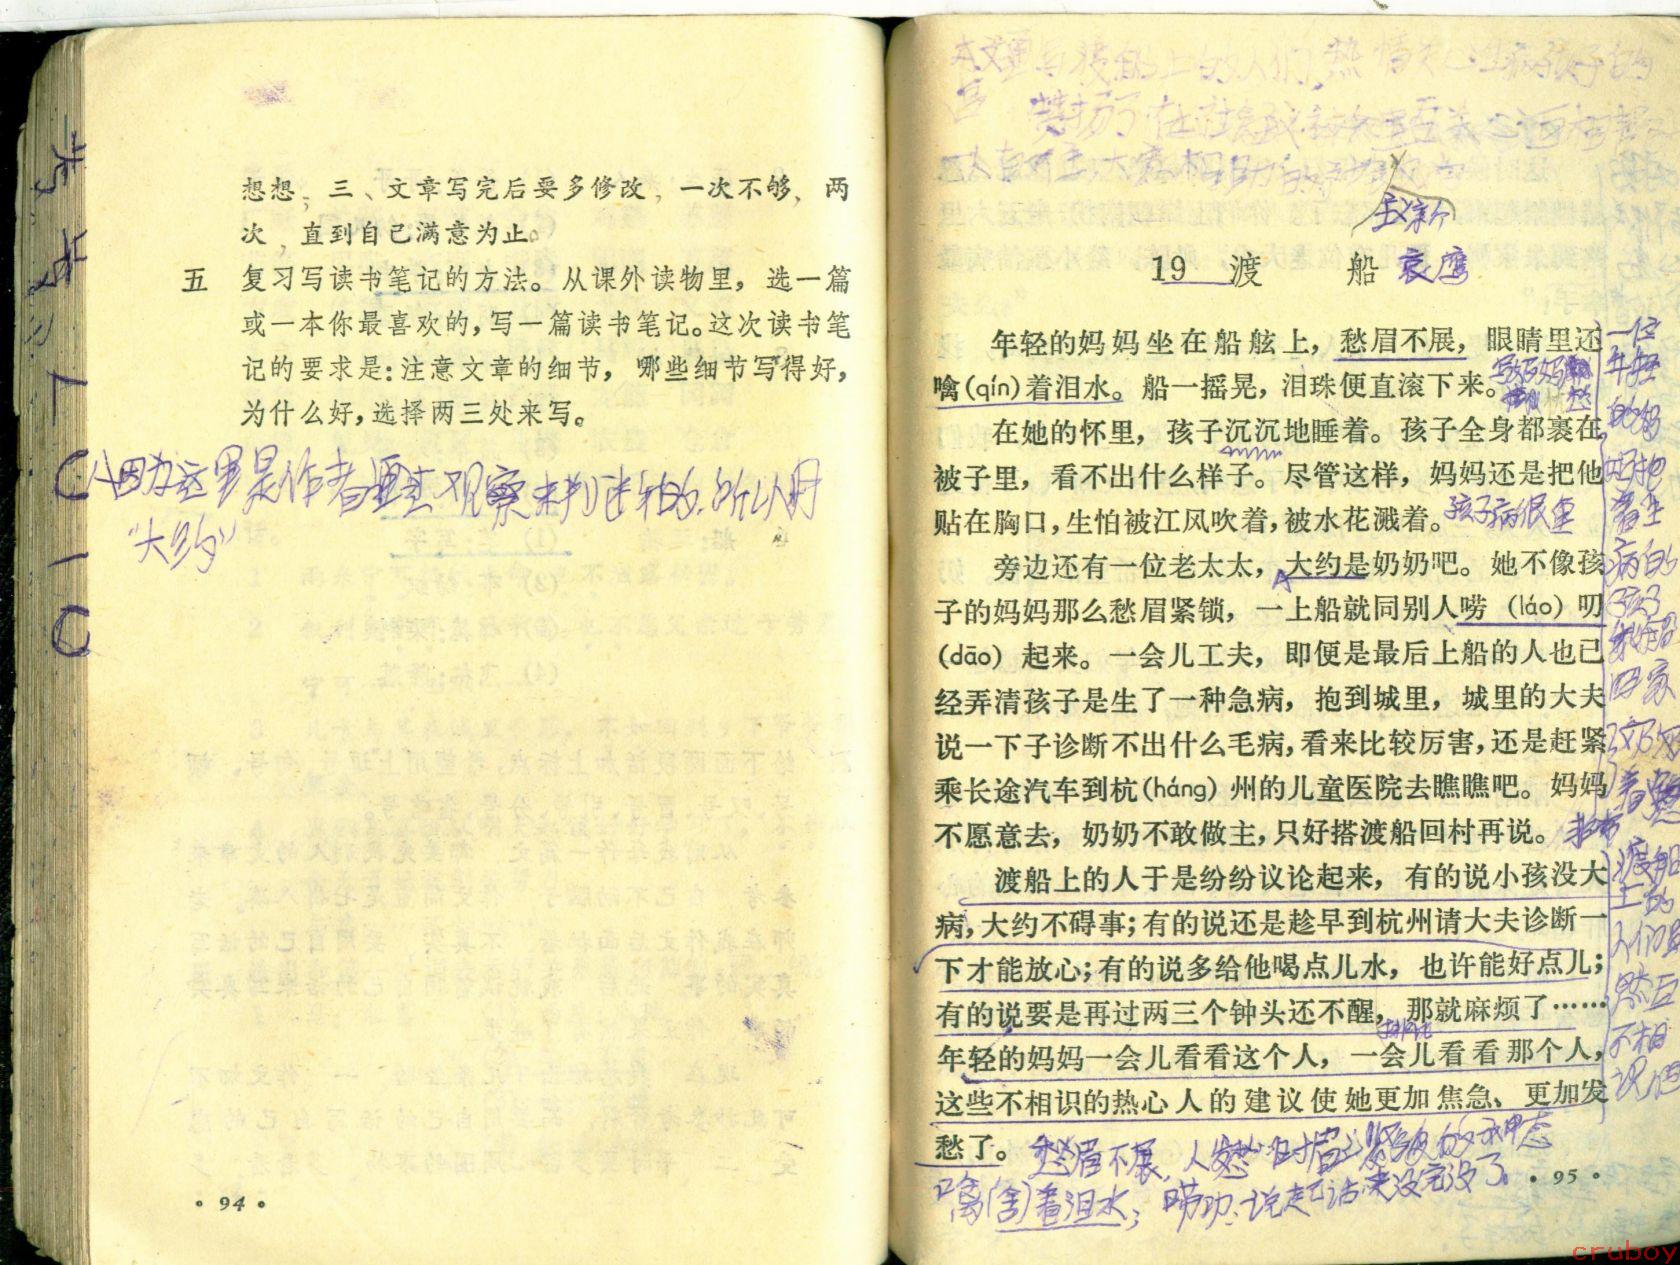 想想；三、文章写完后要多修改，一次不够，两
次，直到自己满意为止。
五 复习写读书笔记的方法。从课外读物里，选一篇
或一本你最喜欢的，写一篇读书笔记。这次读书笔
记的要求是：注意文章的细节，哪些细节写得好，
为什么好，选择两三处来写。
因为这里是作者
观察来判
所以用
“大约”
·94·
19 渡 船
袁鹰
年轻的妈妈坐在船舷上，愁眉不展，眼睛里还
噙(qín)着泪水。船一摇晃，泪珠便直滚下来。
在她的怀里，孩子沉沉地睡着。孩子全身都裹在
被子里，看不出什么样子。尽管这样，妈妈还是把他
贴在胸口，生怕被江风吹着，被水花溅着。
孩子病很重
旁边还有一位老太太，大约是奶奶吧。她不像孩
子的妈妈那么愁眉紧锁，一上船就同别人唠（láo）叨
(dāo) 起来。一会儿工夫，即便是最后上船的人也已
经弄清孩子是生了一种急病，抱到城里，城里的大夫
说一下子诊断不出什么毛病，看来比较厉害，还是赶紧
乘长途汽车到杭(háng)州的儿童医院去瞧瞧吧。妈妈
不愿意去，奶奶不敢做主，只好搭渡船回村再说。
渡船上的人于是纷纷议论起来，有的说小孩没大
病，大约不碍事；有的说还是趁早到杭州请大夫诊断一
下才能放心；有的说多给他喝点儿水，也许能好点儿；
有的说要是再过两三个钟头还不醒，那就麻烦了……
年轻的妈妈一会儿看看这个人，一会儿看看那个人，
这些不相识的热心人的建议使她更加焦急、更加发
愁了。
愁眉不展，人发愁时眉头紧皱的神态
噙(含)着泪水；唠叨：说起话来没完没了。
·95·
一位
年轻
的妈
妈抱
着生
病的
孩子
回家
渡船
上的
人们虽
然互
不相
识但
cruboy